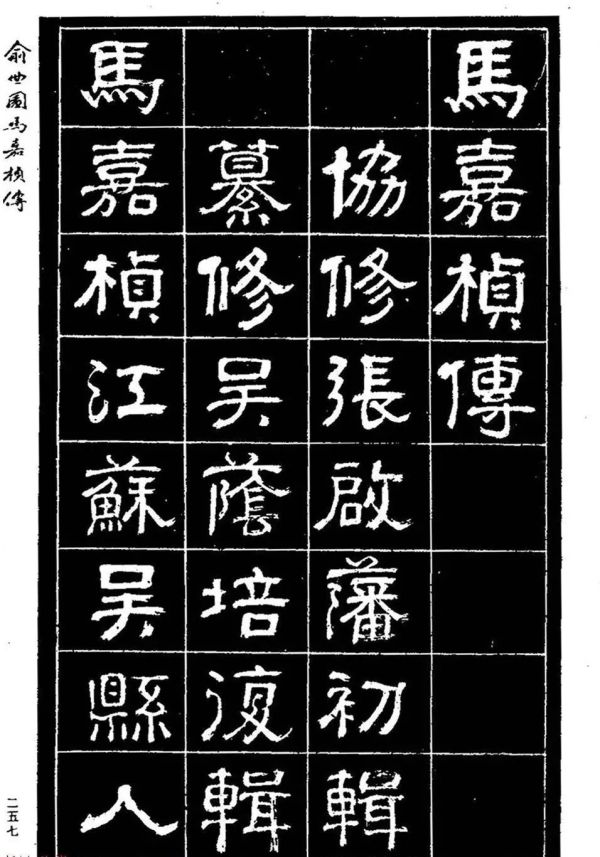 馬嘉楨傳
協修張啟藩初輯
纂修吴蔭培復輯
馬嘉楨江蘇吴縣人
俞曲園馬嘉楨傳
二五七